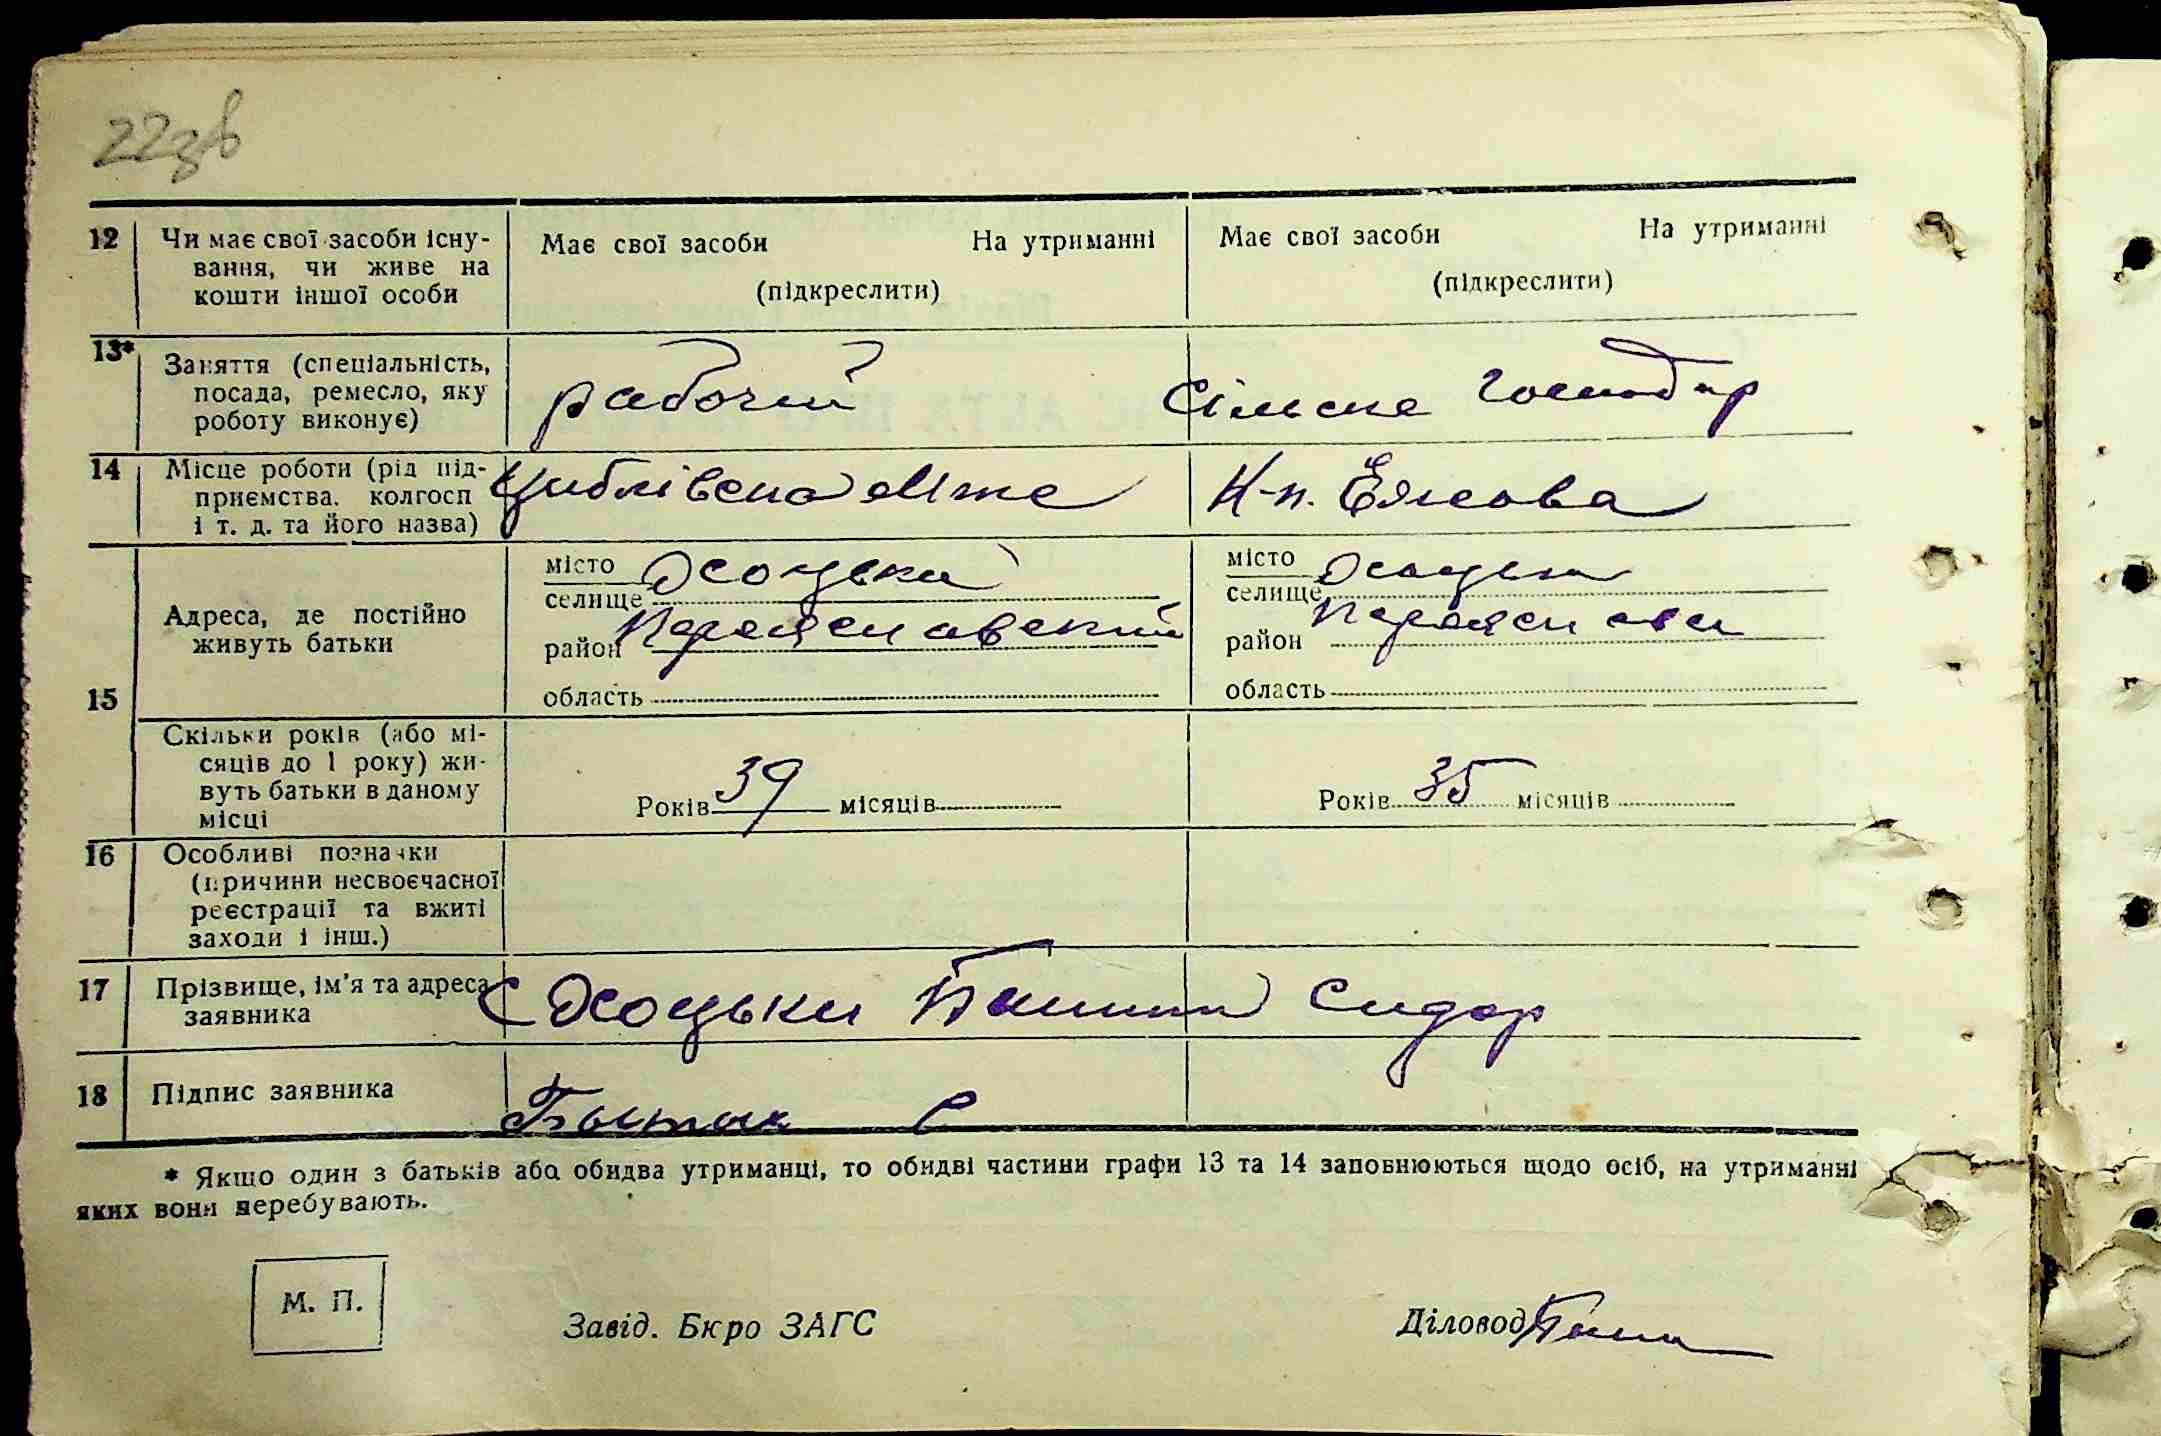 22зв
12 Чи має свої засоби існу- Має свої засоби На утриманні Має свої засоби На утриманні
вання, чи живе на (підкреслити) (підкреслити)
кошти іншої особи
13* Заняття (спеціальність, рабочий сільське господар
посада, ремесло, яку
роботу виконує)
14 Місце роботи (рід під- Циблівська Мтс К-п. Ежова
приємства, колгосп
і т. д. та його назва)
15 Адреса, де постійно живуть батьки
місто селище Осоцька місто селище Осоцька
район Переяславский район Переяславск
область область
Скільки років (або мі- Років 39 місяців Років 35 місяців
сяців до 1 року) жи-
вуть батьки в даному
місці
16 Особливі позначки
(причини несвоєчасної
реєстрації та вжиті
заходи і інш.)
17 Прізвище, ім'я та адреса с Осоцьки Сидор
заявника
18 Підпис заявника С
* Якщо один з батьків або обидва утриманці, то обидві частини графи 13 та 14 заповнюються щодо осіб, на утриманні
яких вони перебувають.
М. П.
Завід. Бюро ЗАГС Діловод